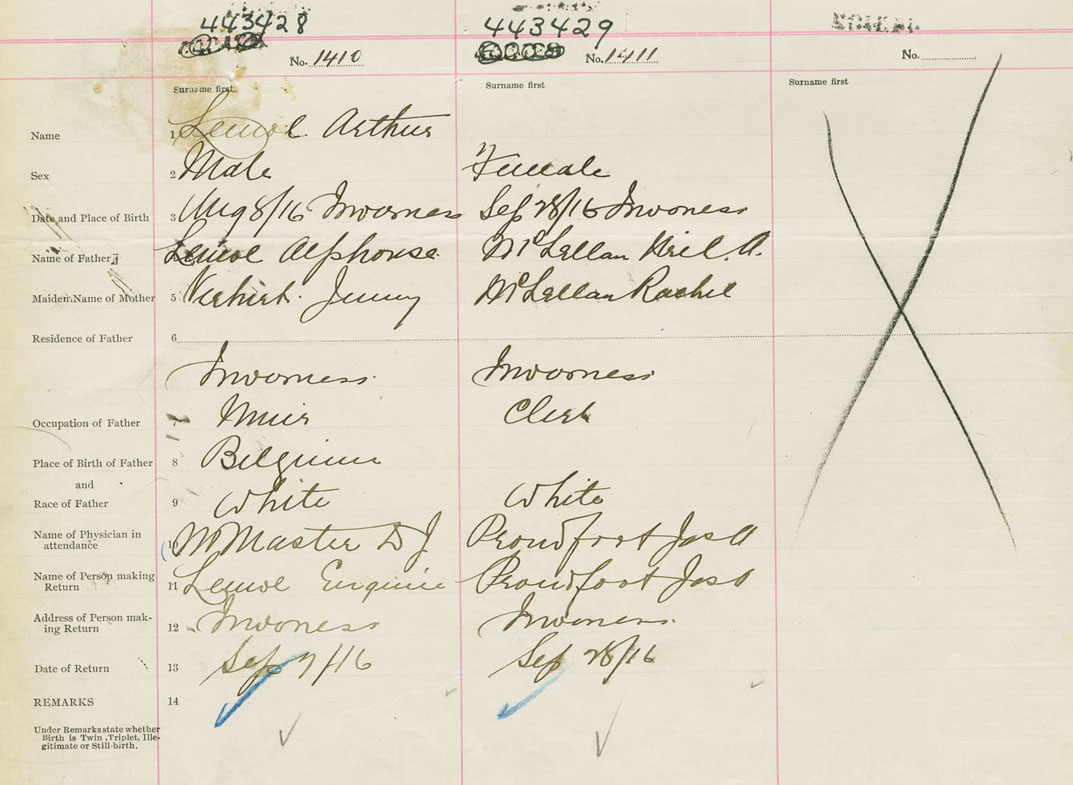 443428 443429
No. 1410 No. 1411 No.
Surname first Surname first Surname first
Name 1 Arthur
Sex 2 Male Female
Date and Place of Birth 3 Aug 8/16 Inverness Sep 28/16 Inverness
Name of Father Alphonse McLellan Neil A.
Maiden Name of Mother 5 Jenny McLellan Rachel
Residence of Father 6
Inverness Inverness
Occupation of Father 7 Miner Clerk
Place of Birth of Father 8 Belgium
and
Race of Father 9 White White
Name of Physician in
attendance 10 McMaster D J Proudfoot Jas A
Name of Person making
Return 11 Proudfoot Jas A
Address of Person mak-
ing Return 12 Inverness Inverness
Date of Return 13 Sep 7/16 Sep 28/16
REMARKS 14
Under Remarks state whether
Birth is Twin, Triplet, Ille-
gitimate or Still-birth.